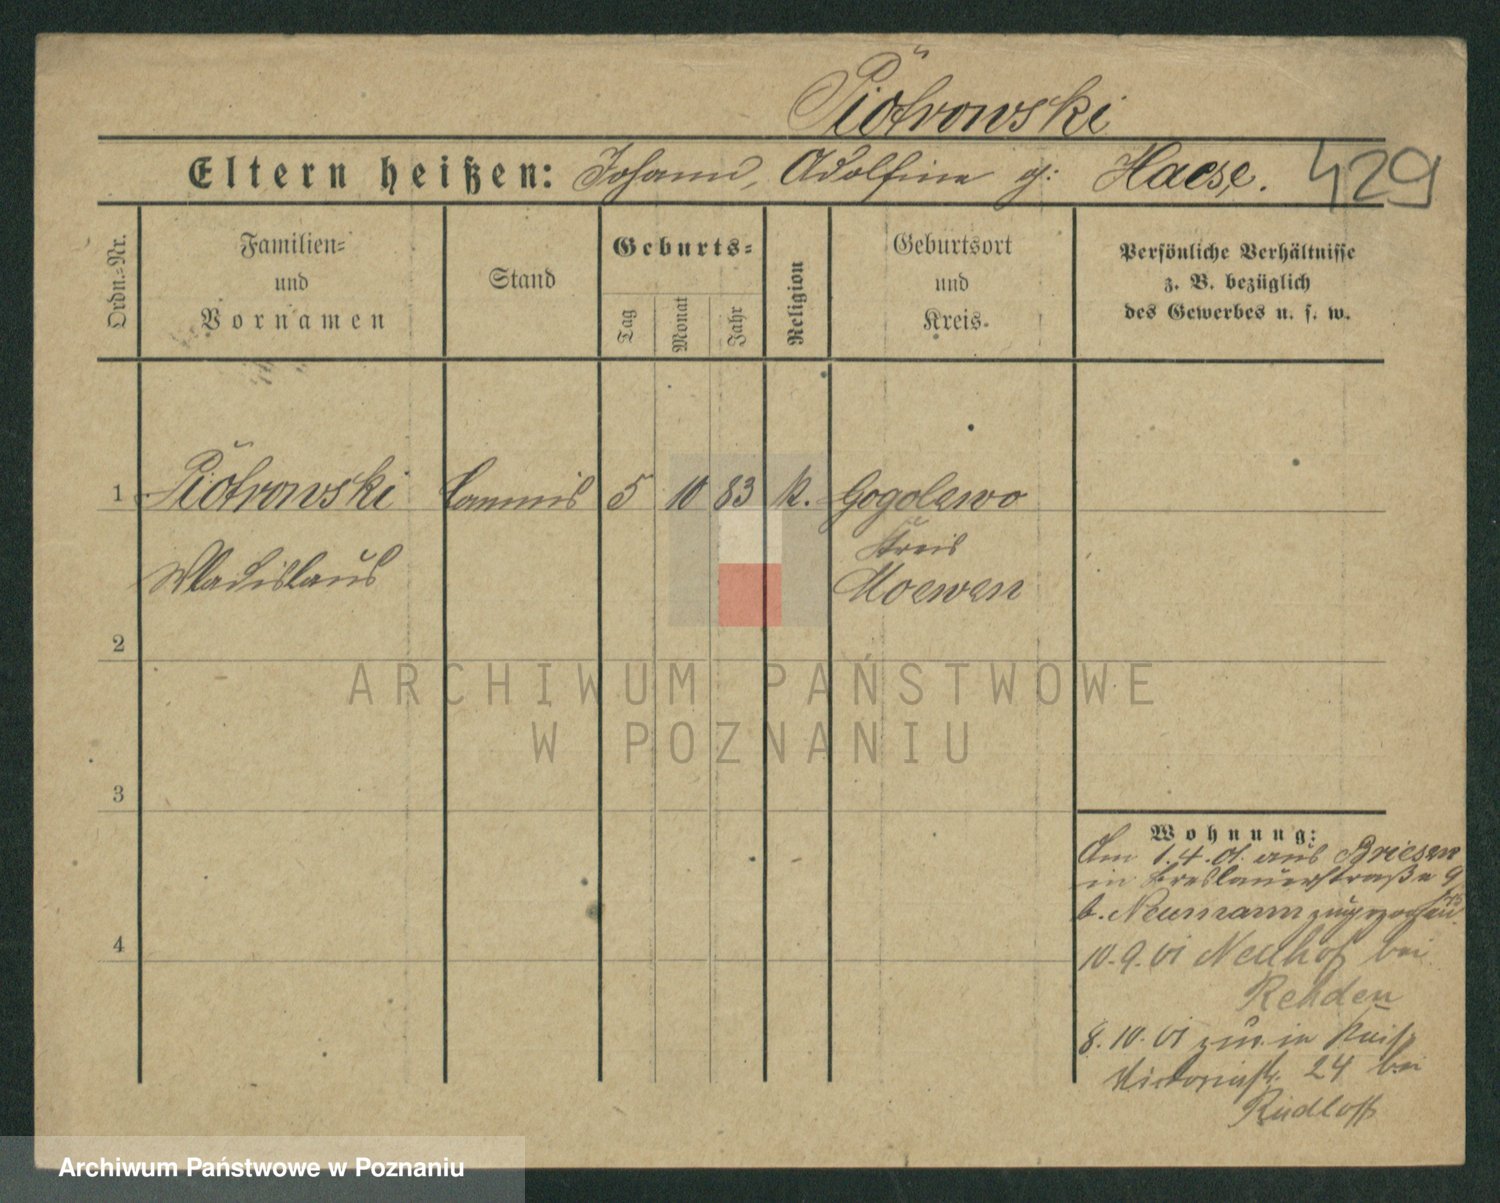 Piotrowski
Eltern heißen: Johann, Adolfine g: Haese. 429
Ordn.=Nr.
Familien= und Vornamen
Stand
Geburts=
Tag
Monat
Jahr
Religion
Geburtsort und Kreis.
Persönliche Verhältnisse
z. B. bezüglich
des Gewerbes u. s. w.
1 Piotrowski Commis 5 10 83 k. Gogolewo
Kreis
Wladislaus Moewen
2
ARCHIWUM PAŃSTWOWE
W POZNANIU
3
Wohnung:
Am 1.4.01. aus Briesen
in Breslauerstraße 9
b. Neumann zugezogen
4
10.9.01 Neuhof bei
Rehden
8.10.01 zur. in
24 bei
Rudloff
Archiwum Państwowe w Poznaniu